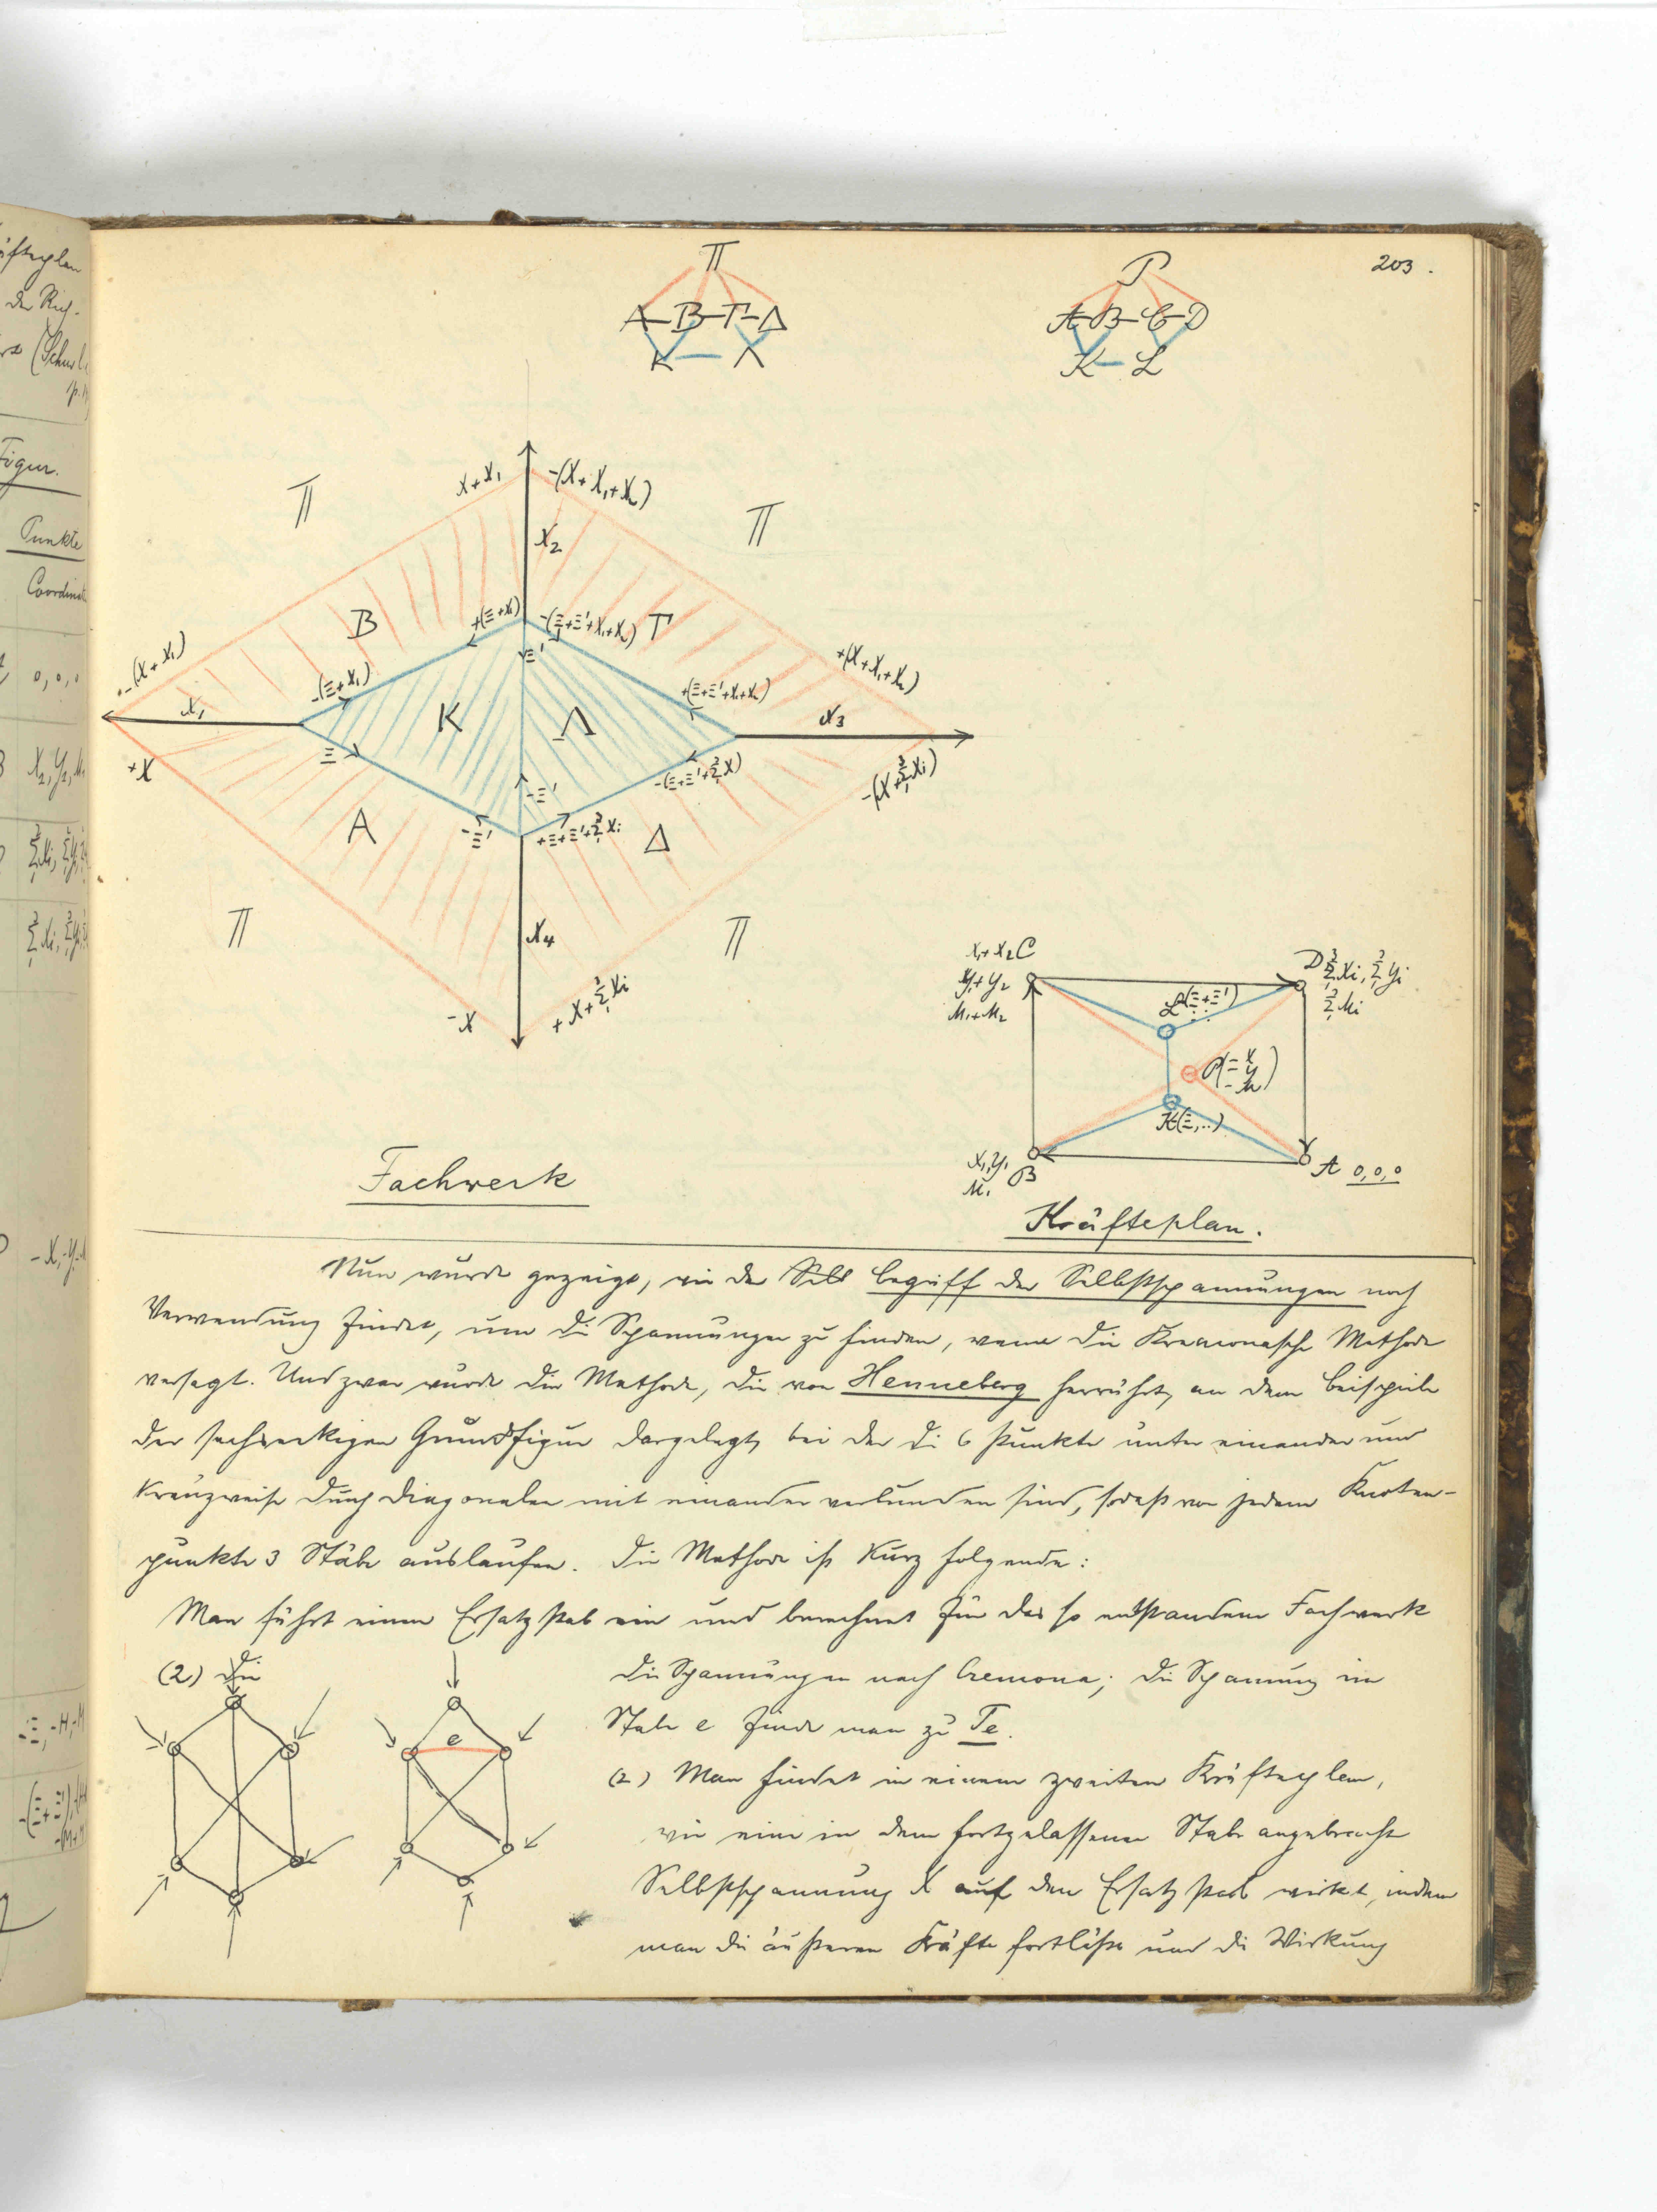 203.
Π
A–B–Γ–Δ
K — Λ
P
A–B–C–D
K–L
Π
X+X₁
-(X+X₁+X₂)
Π
X₂
B
+(Ξ+X₁)
-(Ξ+Ξ'+X₁+X₂)
Γ
Ξ'
-(X+X₁)
-(Ξ+X₁)
+(Ξ+Ξ'+X₁+X₂)
+(X+X₁+X₂)
X₁
K
Λ
X₃
+X
Ξ
-Ξ'
-(Ξ+Ξ'+Σ³₁X)
-(X+Σ³₁Xi)
A
-Ξ'
+Ξ+Ξ'+Σ³₁Xi
Δ
Π
X₄
Π
-X
+X+Σ³₁Xi
X₁+X₂ C
Y₁+Y₂
M₁+M₂
D Σ³₁Xi, Σ³₁Yi
Σ³₁Mi
L(Ξ+Ξ')
P(=X
Y
M)
K(Ξ,..)
X₁Y₁
M₁
B
A 0,0,0
Fachwerk
Kräfteplan.
Nun wurde gezeigt, wie der Selb Begriff der Selbstspannungen noch
Verwendung findet, um die Spannungen zu finden, wenn die Kremonasche Methode
versagt. Und zwar wurde die Methode, die von Henneberg herrührt, an dem Beispiele
der sechseckigen Grundfigur dargelegt, bei der die 6 Punkte unter einander und
kreuzweise durch Diagonalen mit einander verbunden sind, sodaß von jedem Knoten-
punkte 3 Stäbe auslaufen. Die Methode ist kurz folgende:
Man führt einen Ersatzstab ein und berechnet für das so entstandene Fachwerk
(2) Die
die Spannungen nach Cremona; die Spannung im
Stabe e finde man zu Te.
e
(2) Man findet in einem zweiten Kräfteplan,
wie eine in dem fortgelassenen Stabe angebrachte
Selbstspannung X auf den Ersatzstab wirkt, indem
man die äußeren Kräfte fortläßt und die Wirkung